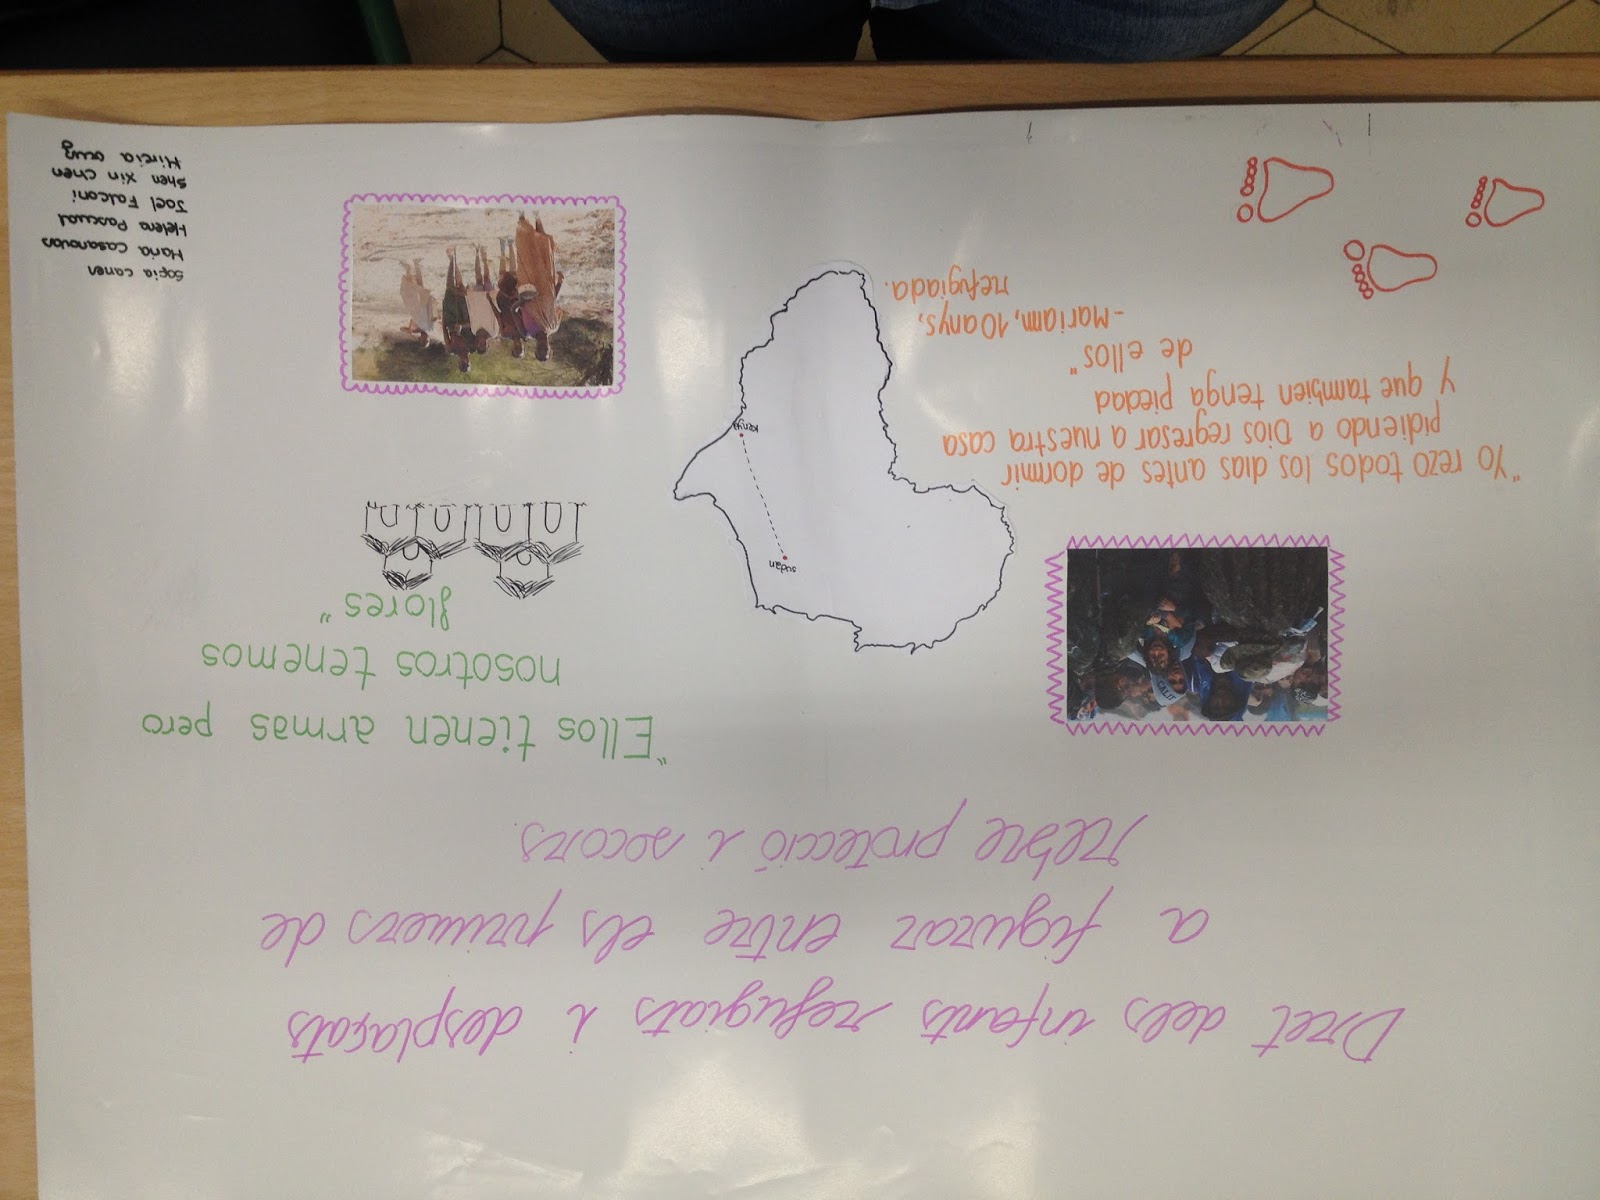 Dret dels infants refugiats i desplaçats
a figurar entre els primers de
rebre protecció i socors.
"Ellos tienen armas pero
nosotros tenemos
flores"
"Yo rezo todos los dias antes de dormir
pidiendo a Dios regresar a nuestra casa
y que tambien tenga piedad
de ellos"
-Mariam, 10 anys,
refugiada.
sudán
Kenya
Sofia Caner
Maria Casanovas
Helena Pascual
Joel Falconi
Shen Xin Chen
Mireia